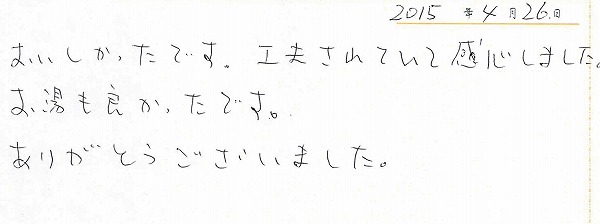 2015年4月26日
おいしかったです。工夫されていて感心しました。
お湯も良かったです。
ありがとうございました。